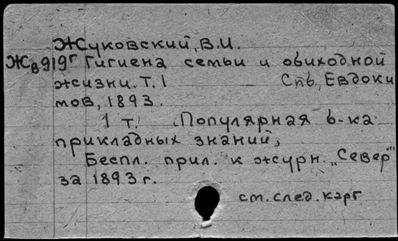 Жуковский, В.И.
Жв919г Гигиена семьи и обиходной
жизни. Т. 1 Спб, Евдоки
мов, 1893.
1 т. (Популярная б-ка
прикладных знаний,
Беспл. прил. к журн. „Север"
за 1893 г.
см. след. карт